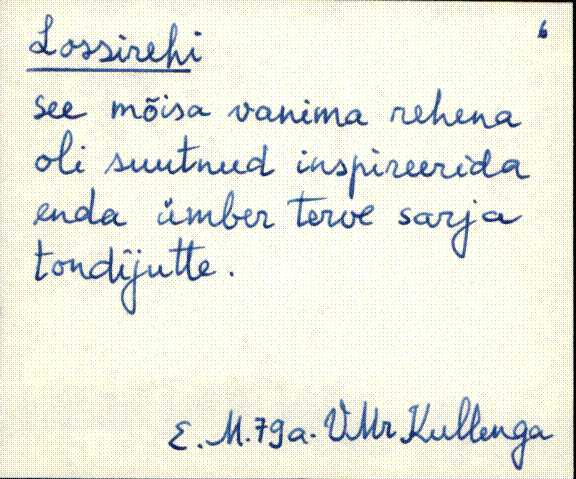 6
Lossirehi
see mõisa vanima rehena
oli suutnud inspireerida
enda ümber terve sarja
tondijutte.
E. M. 79a. VMr Kullenga